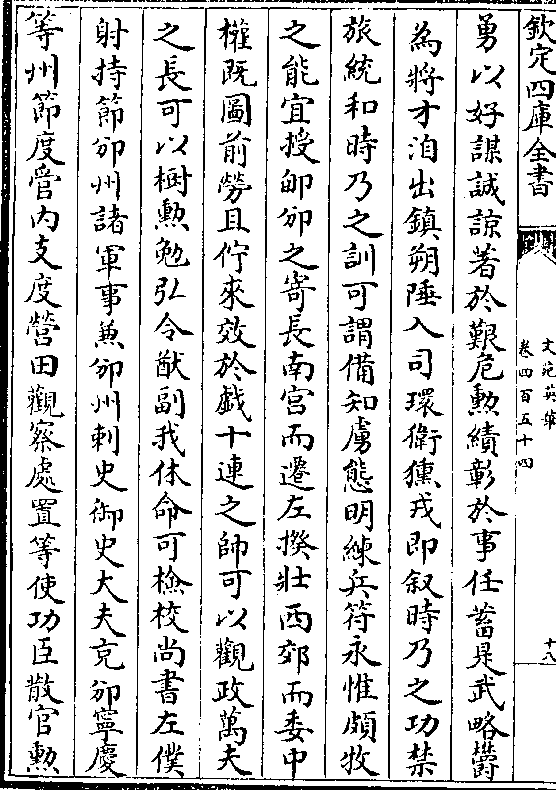 欽定四庫全書
文苑英華
卷四百五十四
十八
勇以好謀誠諒著於艱危勲績彰於事任蓄是武略欝
為將才洎出鎮朔陲入司環衛獯戎即叙時乃之功禁
旅統和時乃之訓可謂備知虜態明練兵符永惟頗牧
之能宜授邠之寄長南宫而遷左揆壯西郊而委中
權既圖前勞且佇來效於戲十連之帥可以觀政萬夫
之長可以樹勲勉弘令猷副我休命可檢校尚書左僕
射持節邠州諸軍事兼邠州刺史御史大夫充邠寧慶
等州節度管内支度營田觀察處置等使功臣散官勲